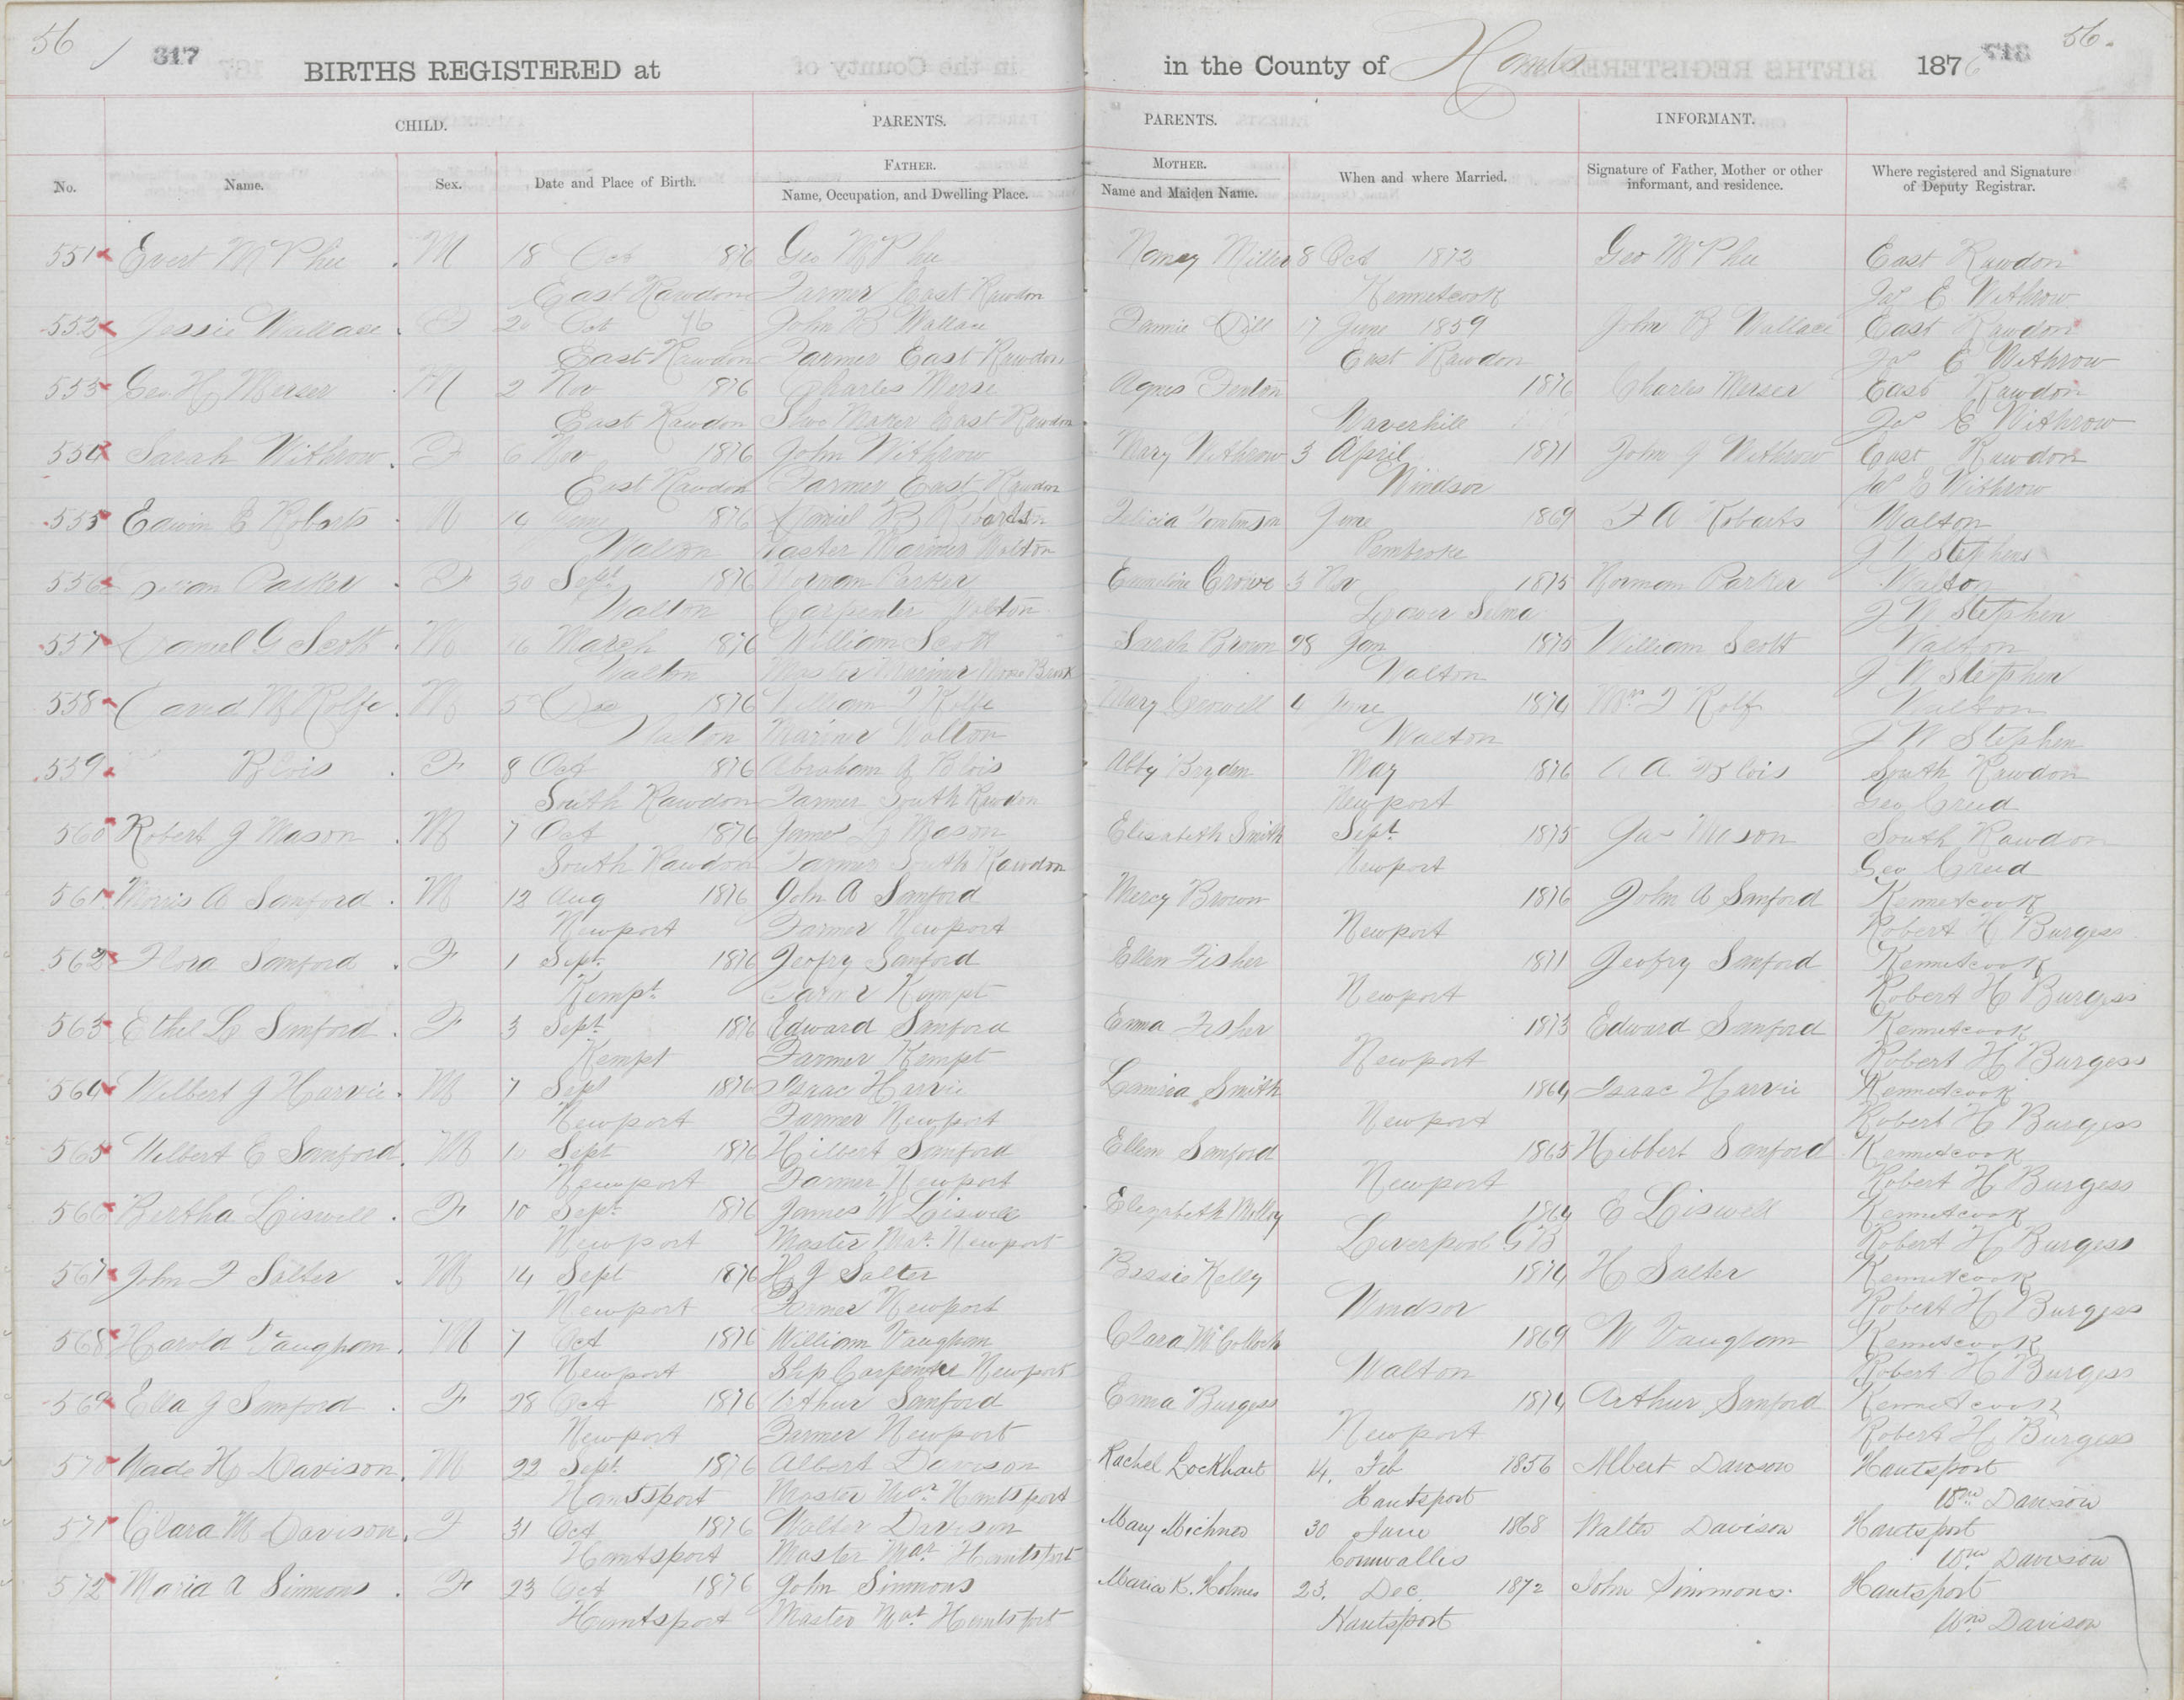 56 317 BIRTHS REGISTERED at in the County of Hants 1876 56.
CHILD. PARENTS. PARENTS. INFORMANT.
No. Name. Sex. Date and Place of Birth. FATHER. Name, Occupation, and Dwelling Place. MOTHER. Name and Maiden Name. When and where Married. Signature of Father, Mother or other informant, and residence. Where registered and Signature of Deputy Registrar.
551 Evert McPhee M 18 Oct 876 Geo McPhee Nancy Miller 8 Oct 1872 Geo McPhee East Rawdon
East Rawdon Farmer East Rawdon Kennetcook Jas E Withrow
552 Jessie Wallace F 20 Oct 76 John B Wallace Fannie Dill 17 June 1859 John B Wallace East Rawdon
East Rawdon Farmer East Rawdon East Rawdon Jas E Withrow
553 Geo H Merser M 2 Nov 1876 Charles Merse Agnes Fenton 1876 Charles Merser East Rawdon
East Rawdon Shoe Maker East Rawdon Waverhill Jas E Withrow
554 Sarah Withrow F 6 Nov 1876 John Withrow Mary Withrow 3 April 1871 John J Withrow East Rawdon
East Rawdon Farmer East Rawdon Windsor Jas E Withrow
555 Edwin E Roberts M 14 June 1876 Felicia Tomlinson June 1869 F A Roberts Walton
Walton Master Mariner Walton Pembroke J W Stephens
556 Parker F 30 Sept 1876 Norman Parker Emmeline Crowe 3 Nov 1875 Norman Parker Walton
Walton Carpenter Walton Lower Selma J W Stephen
557 Daniel G Scott M 16 March 876 William Scott Sarah Brown 28 Jan 1875 William Scott Walton
Walton Master Mariner Moose Brook Walton J W Stephen
558 David M Rolfe M 5 Dec 1876 William T Rolfe Mary Crowell 4 June 1874 Rolfe Walton
Walton Mariner Walton Walton J W Stephen
559 Blois F 8 Oct 1876 Abraham A Blois Abby Bryden May 1876 A A Blois South Rawdon
South Rawdon Farmer South Rawdon Newport Geo Creed
560 Robert J Mason M 7 Oct 1876 James L Mason Elisabeth Smith Sept 1875 Jas Mason South Rawdon
South Rawdon Farmer South Rawdon Newport Geo Creed
561 Morris A Sanford M 12 Aug 1876 John A Sanford Mercy Brown 1876 John A Sanford Kennetcook
Newport Farmer Newport Newport Robert H Burgess
562 Flora Sanford F 1 Sept 1876 Jeofry Sanford Ellen Fisher 1871 Jeofry Sanford Kennetcook
Kempt Farmer Kempt Newport Robert H Burgess
563 Ethel L Sanford F 3 Sept 1876 Edward Sanford Emma Fisher 1873 Edward Sanford Kennetcook
Kempt Farmer Kempt Newport Robert H Burgess
564 Wilbert J Harvie M 7 Sept 1876 Isaac Harvie Smith 1864 Isaac Harvie Kennetcook
Newport Farmer Newport Newport Robert H Burgess
565 Wilbert E Sanford M 10 Sept 1876 Hilbert Sanford Ellen Sanford 1865 Hibbert Sanford Kennetcook
Newport Farmer Newport Newport Robert H Burgess
566 Bertha Liswell F 10 Sept 1876 James W Liswell Elizabeth Molloy 1864 E Liswell Kennetcook
Newport Master Mar. Newport Liverpool GB Robert H Burgess
567 John F Salter M 14 Sept 1876 H J Salter Bessie Kelly 1874 H Salter Kennetcook
Newport Farmer Newport Windsor Robert H Burgess
568 Harold Vaughan M 7 Oct 1876 William Vaughan Clara McColloch 1869 W Vaughan Kennetcook
Newport Ship Carpenter Newport Walton Robert H Burgess
569 Ella J Sanford F 28 Oct 1876 Arthur Sanford Emma Burgess 1874 Arthur Sanford Kennetcook
Newport Farmer Newport Newport Robert H Burgess
570 Wade H Davison M 22 Sept 1876 Albert Davison Rachel Lockhart 14. Feb 1856 Albert Davison Hantsport
Hantsport Master Mar. Hantsport Hantsport Wm Davison
571 Clara M Davison F 31 Oct 1876 Walter Davison Mary Michner 30 June 1868 Walter Davison Hantsport
Hantsport Master Mar. Hantsport Cornwallis Wm Davison
572 Maria A Simmons F 23 Oct 1876 John Simmons Maria K. Holmes 23. Dec. 1872 John Simmons. Hantsport
Hantsport Master Mar. Hantsport Hantsport Wm Davison